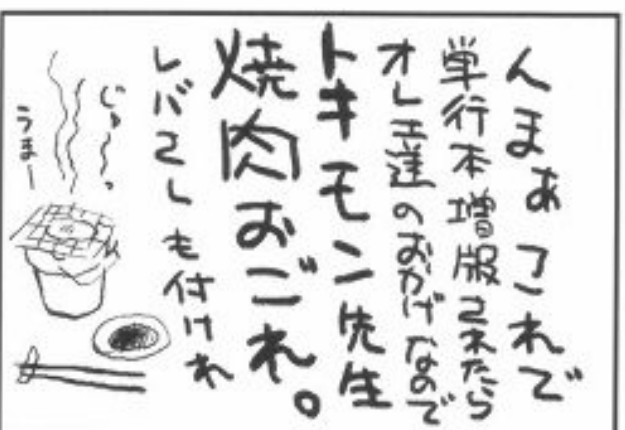 人まあこれで
単行本増版されたら
オレ達のおかげなので
トキモン先生
焼肉おごれ。
レバさしも付けれ
じゅ〜っ
うまー